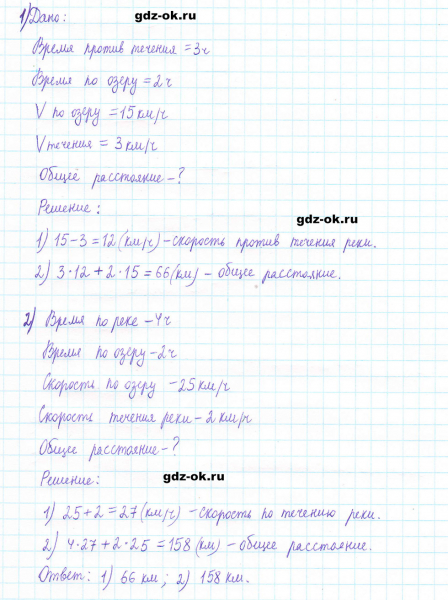 gdz-ok.ru
1) Дано:
Время против течения = 3ч
gdz-ok.ru
Время по озеру = 2ч
V по озеру = 15 км/ч
V течения = 3 км/ч
Общее расстояние - ?
Решение:
gdz-ok.ru
1) 15 - 3 = 12 (км/ч) - скорость против течения реки.
2) 3·12 + 2·15 = 66 (км) - общее расстояние.
2) Время по реке - 4ч
Время по озеру - 2ч
Скорость по озеру - 25 км/ч
Скорость течения реки - 2 км/ч
Общее расстояние - ?
gdz-ok.ru
Решение:
1) 25 + 2 = 27 (км/ч) - скорость по течению реки.
2) 4·27 + 2·25 = 158 (км) - общее расстояние.
Ответ: 1) 66 км; 2) 158 км.
gdz-ok.ru